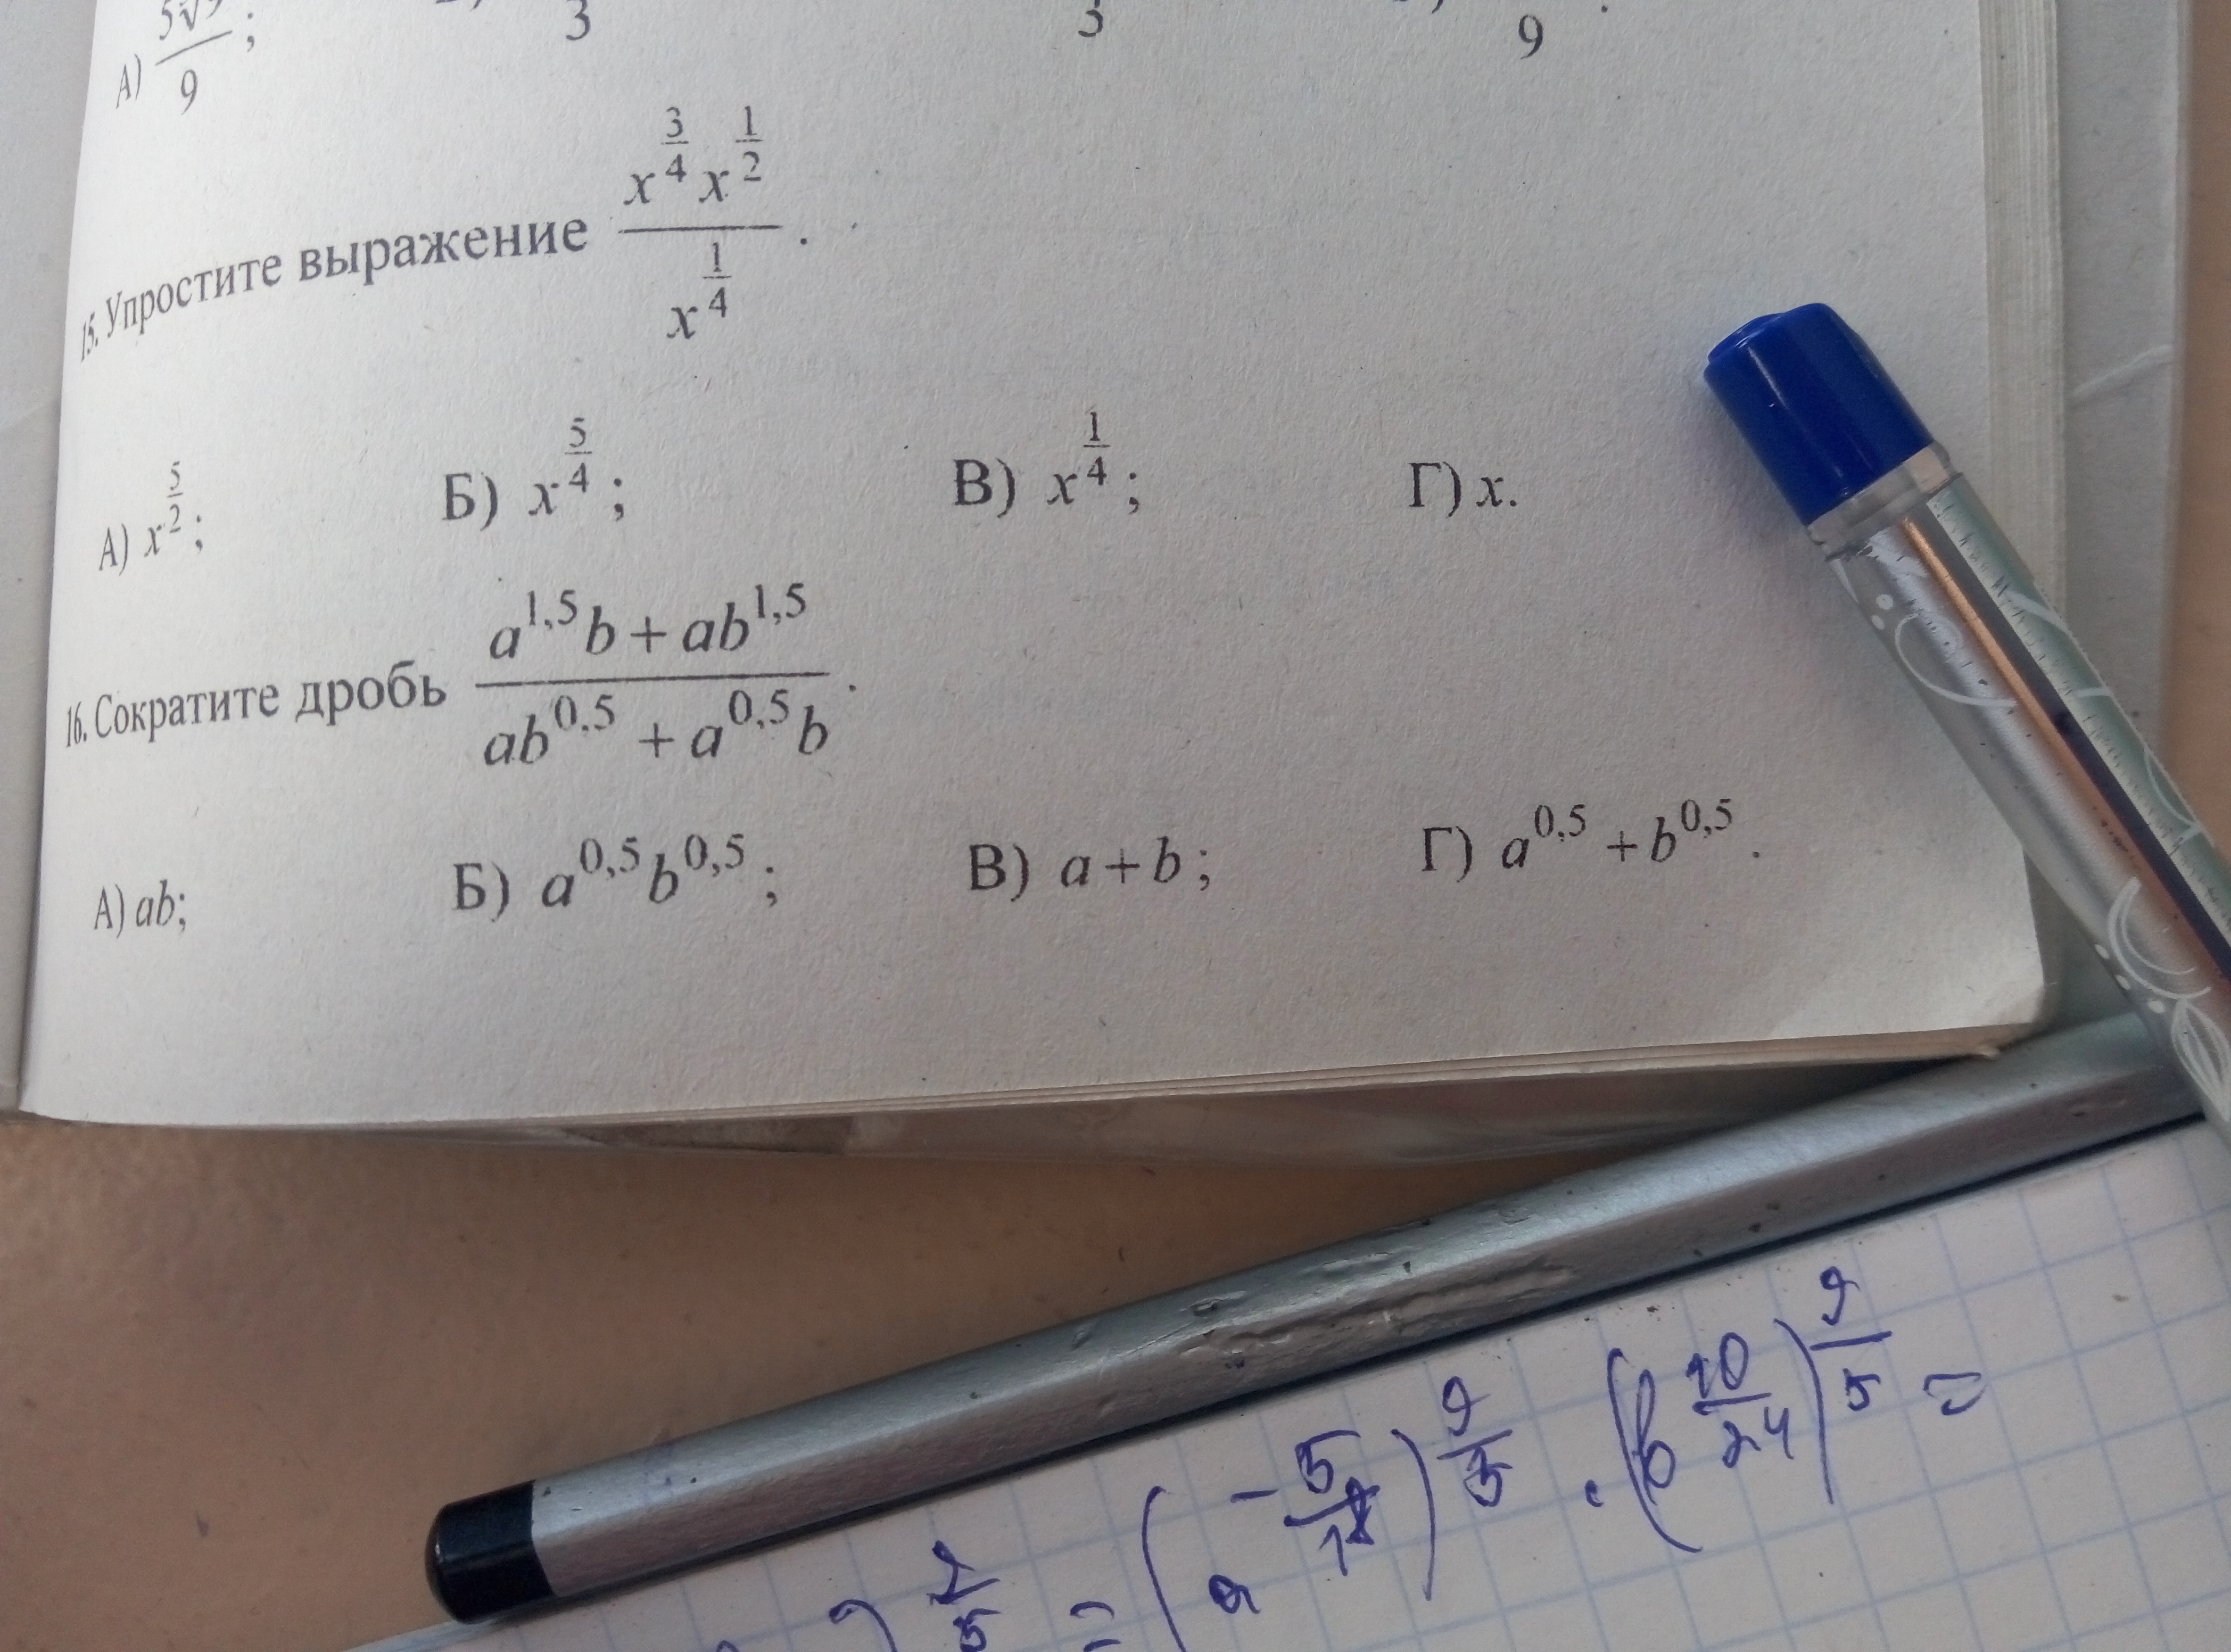 А) 5√ / 9 ; 3 3 9 .
15. Упростите выражение x^(3/4) x^(1/2) / x^(1/4) .
А) x^(5/2); Б) x^(5/4); В) x^(1/4); Г) x.
16. Сократите дробь (a^1,5 b + ab^1,5) / (ab^0,5 + a^0,5 b) .
А) ab; Б) a^0,5 b^0,5; В) a + b; Г) a^0,5 + b^0,5.
) 2/5 = (a ) · (b^(10/24))^(2/5) =